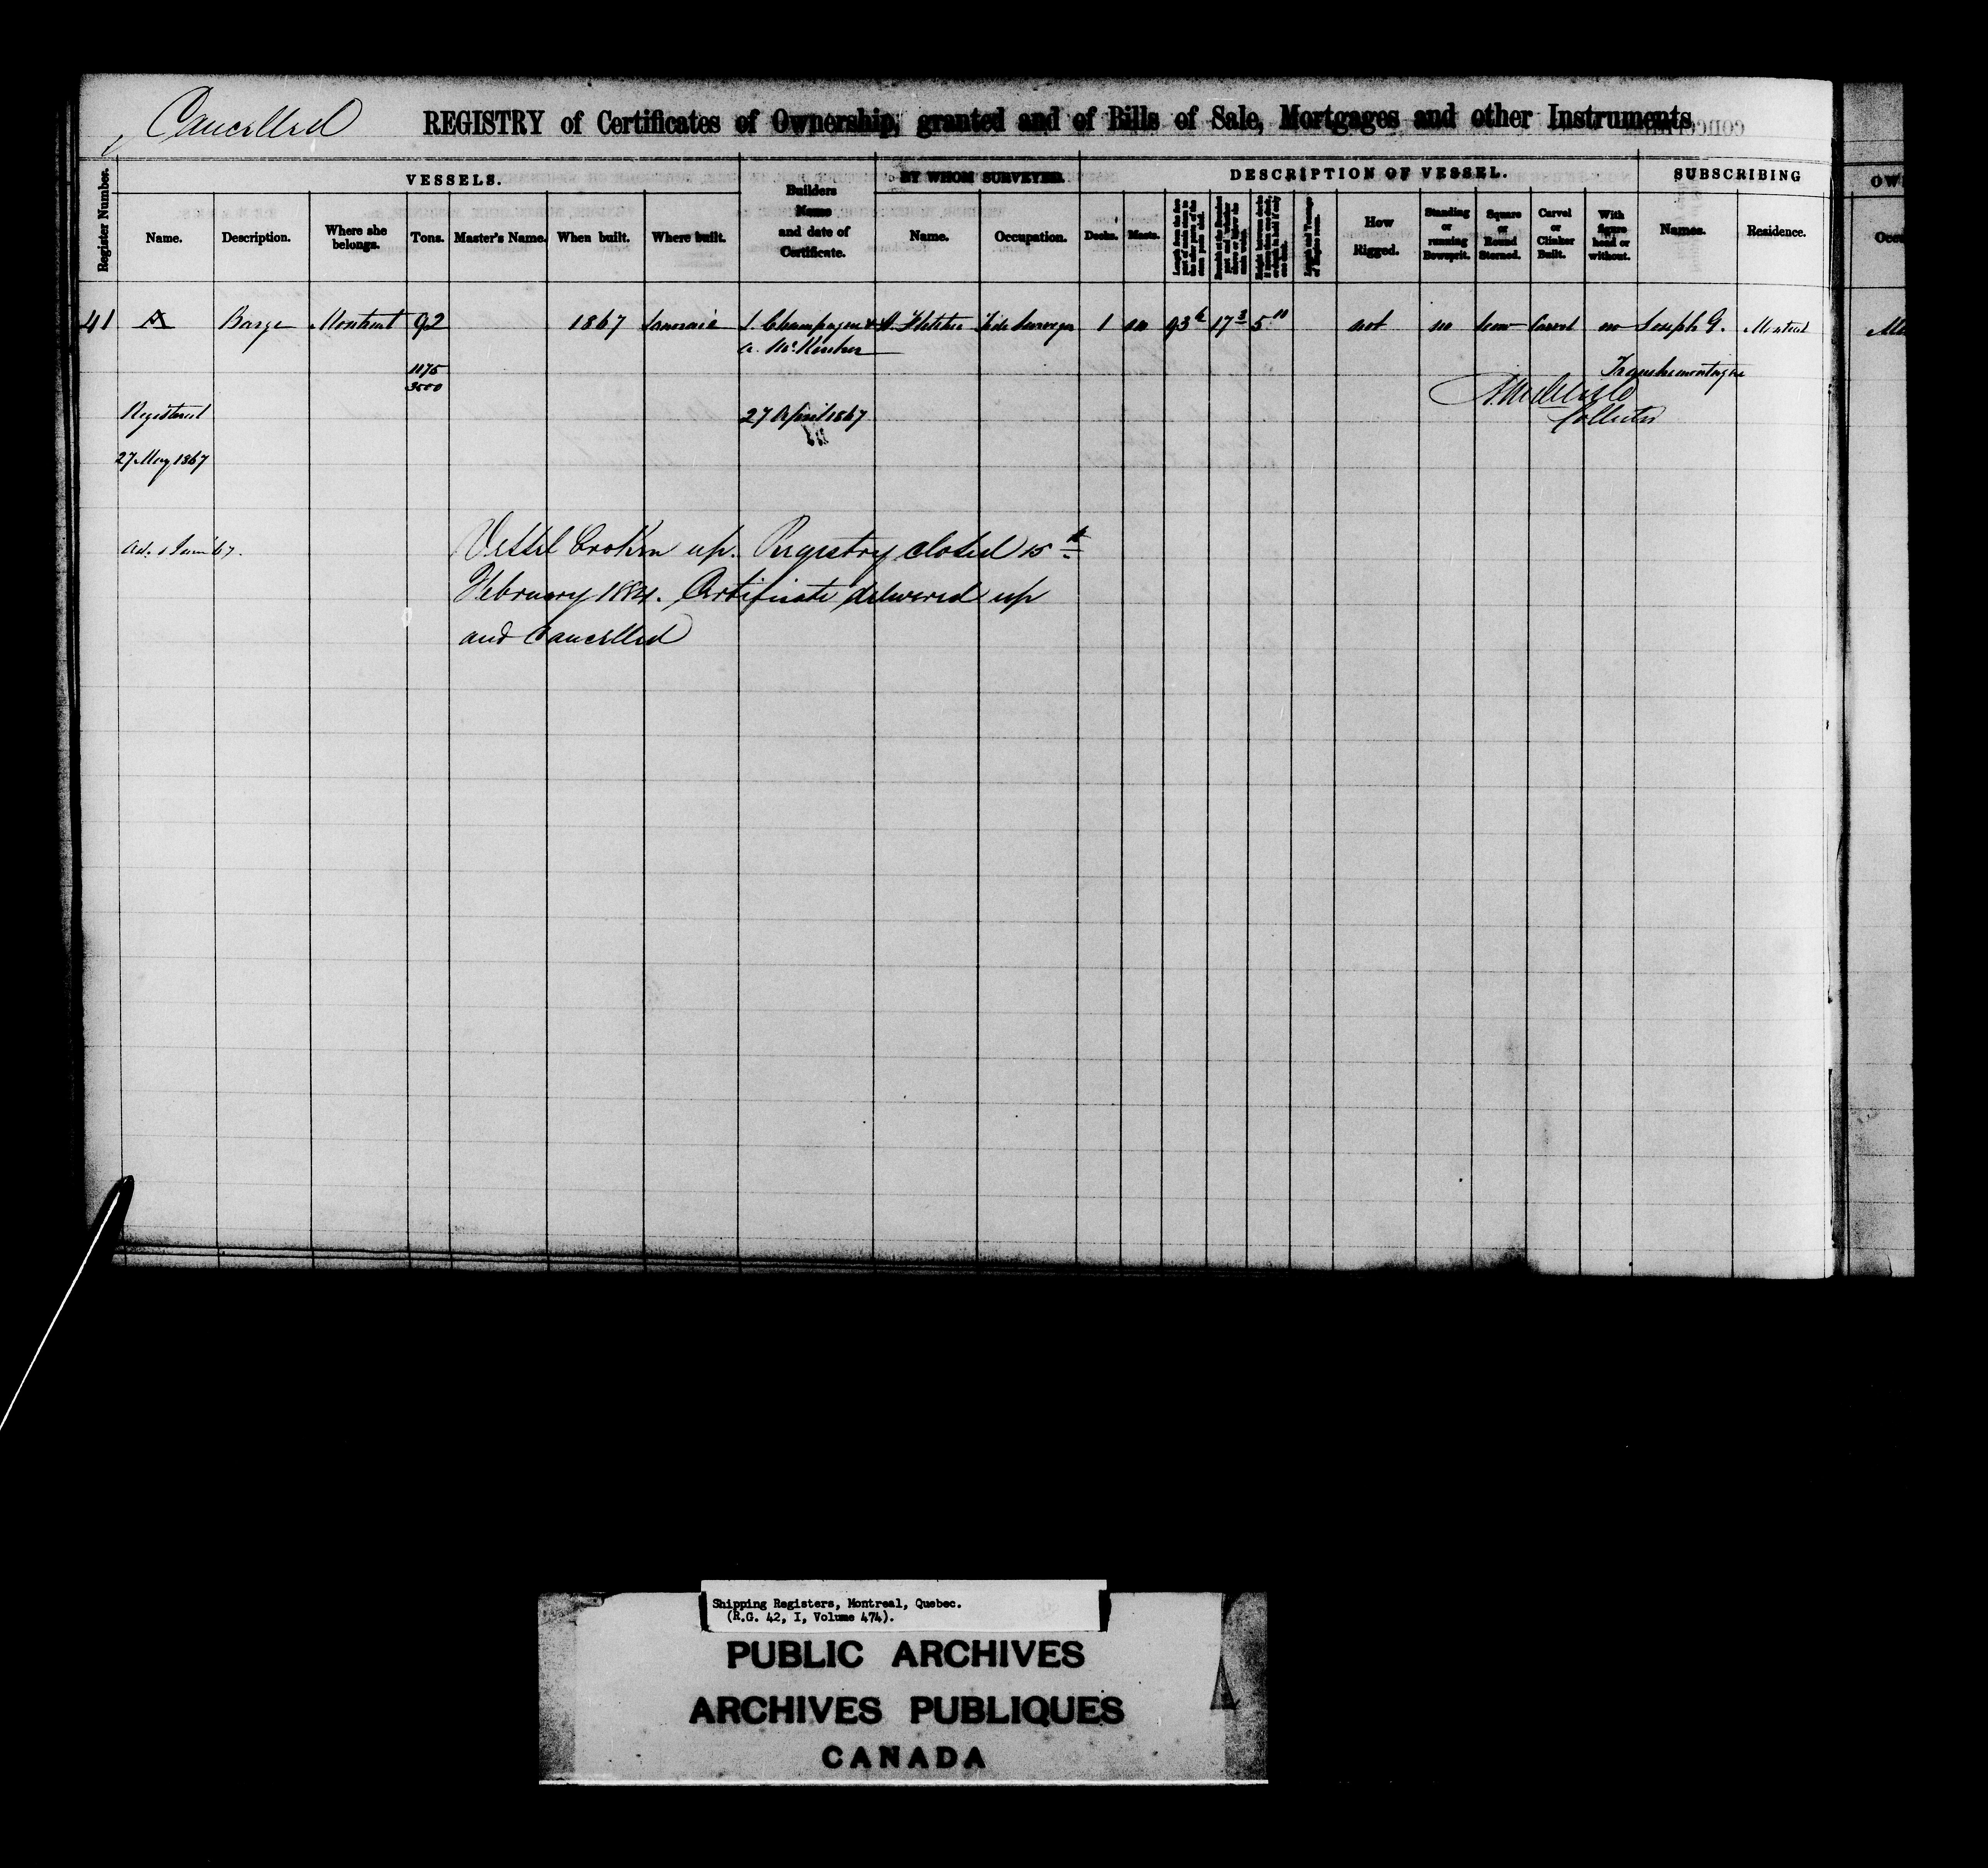 Cancelled
REGISTRY of Certificates of Ownership, granted and of Bills of Sale, Mortgages and other Instruments
Register Number.
VESSELS.
Name.
Description.
Where she
belongs.
Tons.
Master's Name.
When built.
Where built.
Builders
Name
and date of
Certificate.
BY WHOM SURVEYED.
Name.
Occupation.
DESCRIPTION OF VESSEL.
Decks.
Masts.
How
Rigged.
Standing
or
running
Bowsprit.
Square
or
Round
Sterned.
Carvel
or
Clinker
Built.
With
figure
head or
without.
SUBSCRIBING
Names.
Residence.
OW
Occu
41 A Barge Montreal 92 1867 Lanoraie L. Champagne & A. Fletcher Tide Surveyor 1 no 93 6 17 3 5 10 not no Scow Carvel no Joseph G. Montreal
A. McKercher
1175
3500
Transhemontagne
Collector
Registered
27 April 1867
27 May 1867
Vessel broken up. Registry closed 15th
February 1884. Certificate delivered up
and Cancelled
Shipping Registers, Montreal, Quebec.
(R.G. 42, I, Volume 474).
PUBLIC ARCHIVES
ARCHIVES PUBLIQUES
CANADA